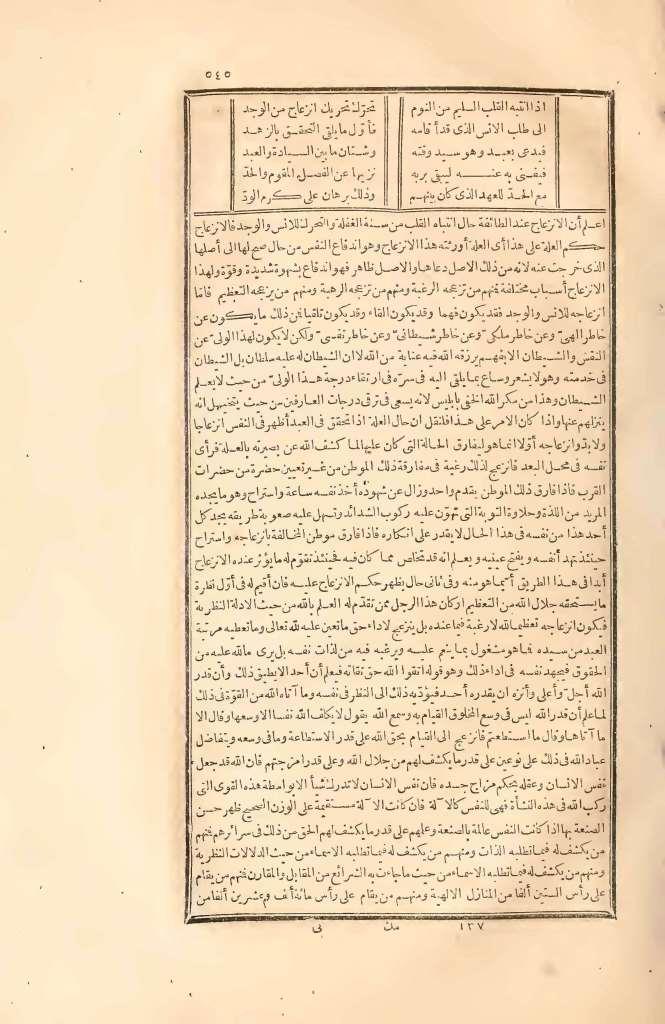 ٥٤٥
اذا انتبه القلب السليم من النوم تحرك تحريك انزعاج من الوجد
الى طلب الانس الذى قد أقامه فأول ما يلقى التحقق بالزهد
فيدعى بعبد وهو سيد وقته وشتان ما بين السيادة والعبد
فيفنى به عنه ليبقى بربه نزيها عن الفصل المقوم والحد
مع الحد للعهد الذى كان بينهم وذلك برهان على كرم الود
اعلم أن الانزعاج عند الطائفة حال انتباه القلب من سنة الغفلة والتحرك للانس والوجد فالانزعاج
حكم العلة على هذا أى العلة أورثته هذا الانزعاج وهو اندفاع النفس من حال صح لها الى أصلها
الذى خرجت عنه لانه من ذلك الاصل دعاها والاصل ظاهر فهو اندفاع بشهوة شديدة وقوة ولهذا
الانزعاج أسباب مختلفة فمنهم من تزعجه الرغبة ومنهم من تزعجه الرهبة ومنهم من يزعجه التعظيم فاما
انزعاجه للانس والوجد فقد يكون فهما وقد يكون القاء وقد يكون تلقيا فمن ذلك ما يكون عن
خاطر الهى وعن خاطر ملكى وعن خاطر شيطانى وعن خاطر نفسى ولكن لا يكون لهذا الولى عن
النفس والشيطان الا بفهم يرزقه الله فيه عناية من الله لا ان الشيطان له عليه سلطان بل الشيطان
فى خدمته وهو لا يشعر وساع بما يلقى اليه فى سره فى ارتقاء درجة هذا الولى من حيث لا يعلم
الشيطان وهذا من مكر الله الخفى بابليس لانه يسعى فى ترقى درجات العارفين من حيث يتخيل انه
ينزلهم عنها واذا كان الامر على هذا فلنقل ان حال العلة اذا تحقق فى العبد أظهر فى النفس انزعاجا
ولا بد وانزعاجه أولا انما هو ليفارق الحالة التى كان عليها لما كشف الله عن بصيرته بالعلة فرأى
نفسه فى محل البعد فانزعج لذلك رغبة فى مفارقة ذلك الموطن من غير تعيين حضرة من حضرات
القرب فاذا فارق ذلك الموطن بقدم واحد وزال عن شهوده أخذ نفسه ساعة واستراح وهو ما يجده
المريد من اللذة وحلاوة التوبة التى تهون عليه ركوب الشدائد وتسهل عليه صعوبة طريقه يجد كل
أحد هذا من نفسه فى هذا الحال لا يقدر على انكاره فاذا فارق موطن المخالفة بانزعاجه واستراح
حينئذ تهد أنفسه ويفتح عينيه ويعلم انه قد تخلص مما كان فيه فحينئذ تقوم له ما يؤثر عنده الانزعاج
أبدا فى هذا الطريق أسما هو منه وفى ثانى حال يظهر حكم الانزعاج عليه فان أقيم له فى أول نظرة
ما يستحقه جلال الله من التعظيم ان كان هذا الرجل ممن تقدم له العلم بالله من حيث الادلة النظرية
فيكون انزعاجه تعظيما لله لا رغبة فيما عنده بل ينزعج لاداء حق ما تعين عليه لله تعالى وما تعطيه مرتبة
العبد من سيده فما هو مشغول بما ينعم عليه ويرغبه فيه من لذات نفسه بل يرى ما لله عليه من
الحقوق فيجهد نفسه فى اداء ذلك وهو قوله اتقوا الله حق تقاته فيعلم أن أحد الا يطيق ذلك وأن قدر
الله أجل وأعلى وأنزه ان يقدره أحد فيؤديه ذلك الى النظر فى نفسه وما آتاه الله من القوة فى ذلك
لما علم أن قدر الله ليس فى وسع المخلوق القيام به وسمع الله يقول لا يكلف الله نفسا الا وسعها وقال الا
ما آتاها وقال ما استطعتم فانزعج الى القيام بحق الله على قدر الاستطاعة وما فى وسعه ويتفاضل
عباد الله فى ذلك على نوعين على قدر ما يكشف لهم من جلال الله وعلى قدر امزجتهم فان الله قد جعل
نفس الانسان وعقله بحكم مزاج جسده فان نفس الانسان لا تدرك شيأ الا بواسطة هذه القوى التى
ركب الله فى هذه النشأة فهى للنفس كالآلة فان كانت الآلة مستقيمة على الوزن الصحيح ظهر حسن
الصنعة بها اذا كانت النفس عالمة بالصنعة وعلمهم على قدر ما يكشف لهم الحق من ذلك فى سرائرهم فمنهم
من يكشف له فيما تطلبه الذات ومنهم من يكشف له فيما تطلبه الاسماء من حيث الدلالات النظرية
ومنهم من يكشف له فيما تطلبه الاسماء من حيث ما جاءت به الشرائع من المقابل والمقارن فمنهم من يقام
على رأس الستين ألفا من المنازل الالهية ومنهم من يقام على رأس مائة ألف وعشرين ألفا من
١٣٧ مك نى